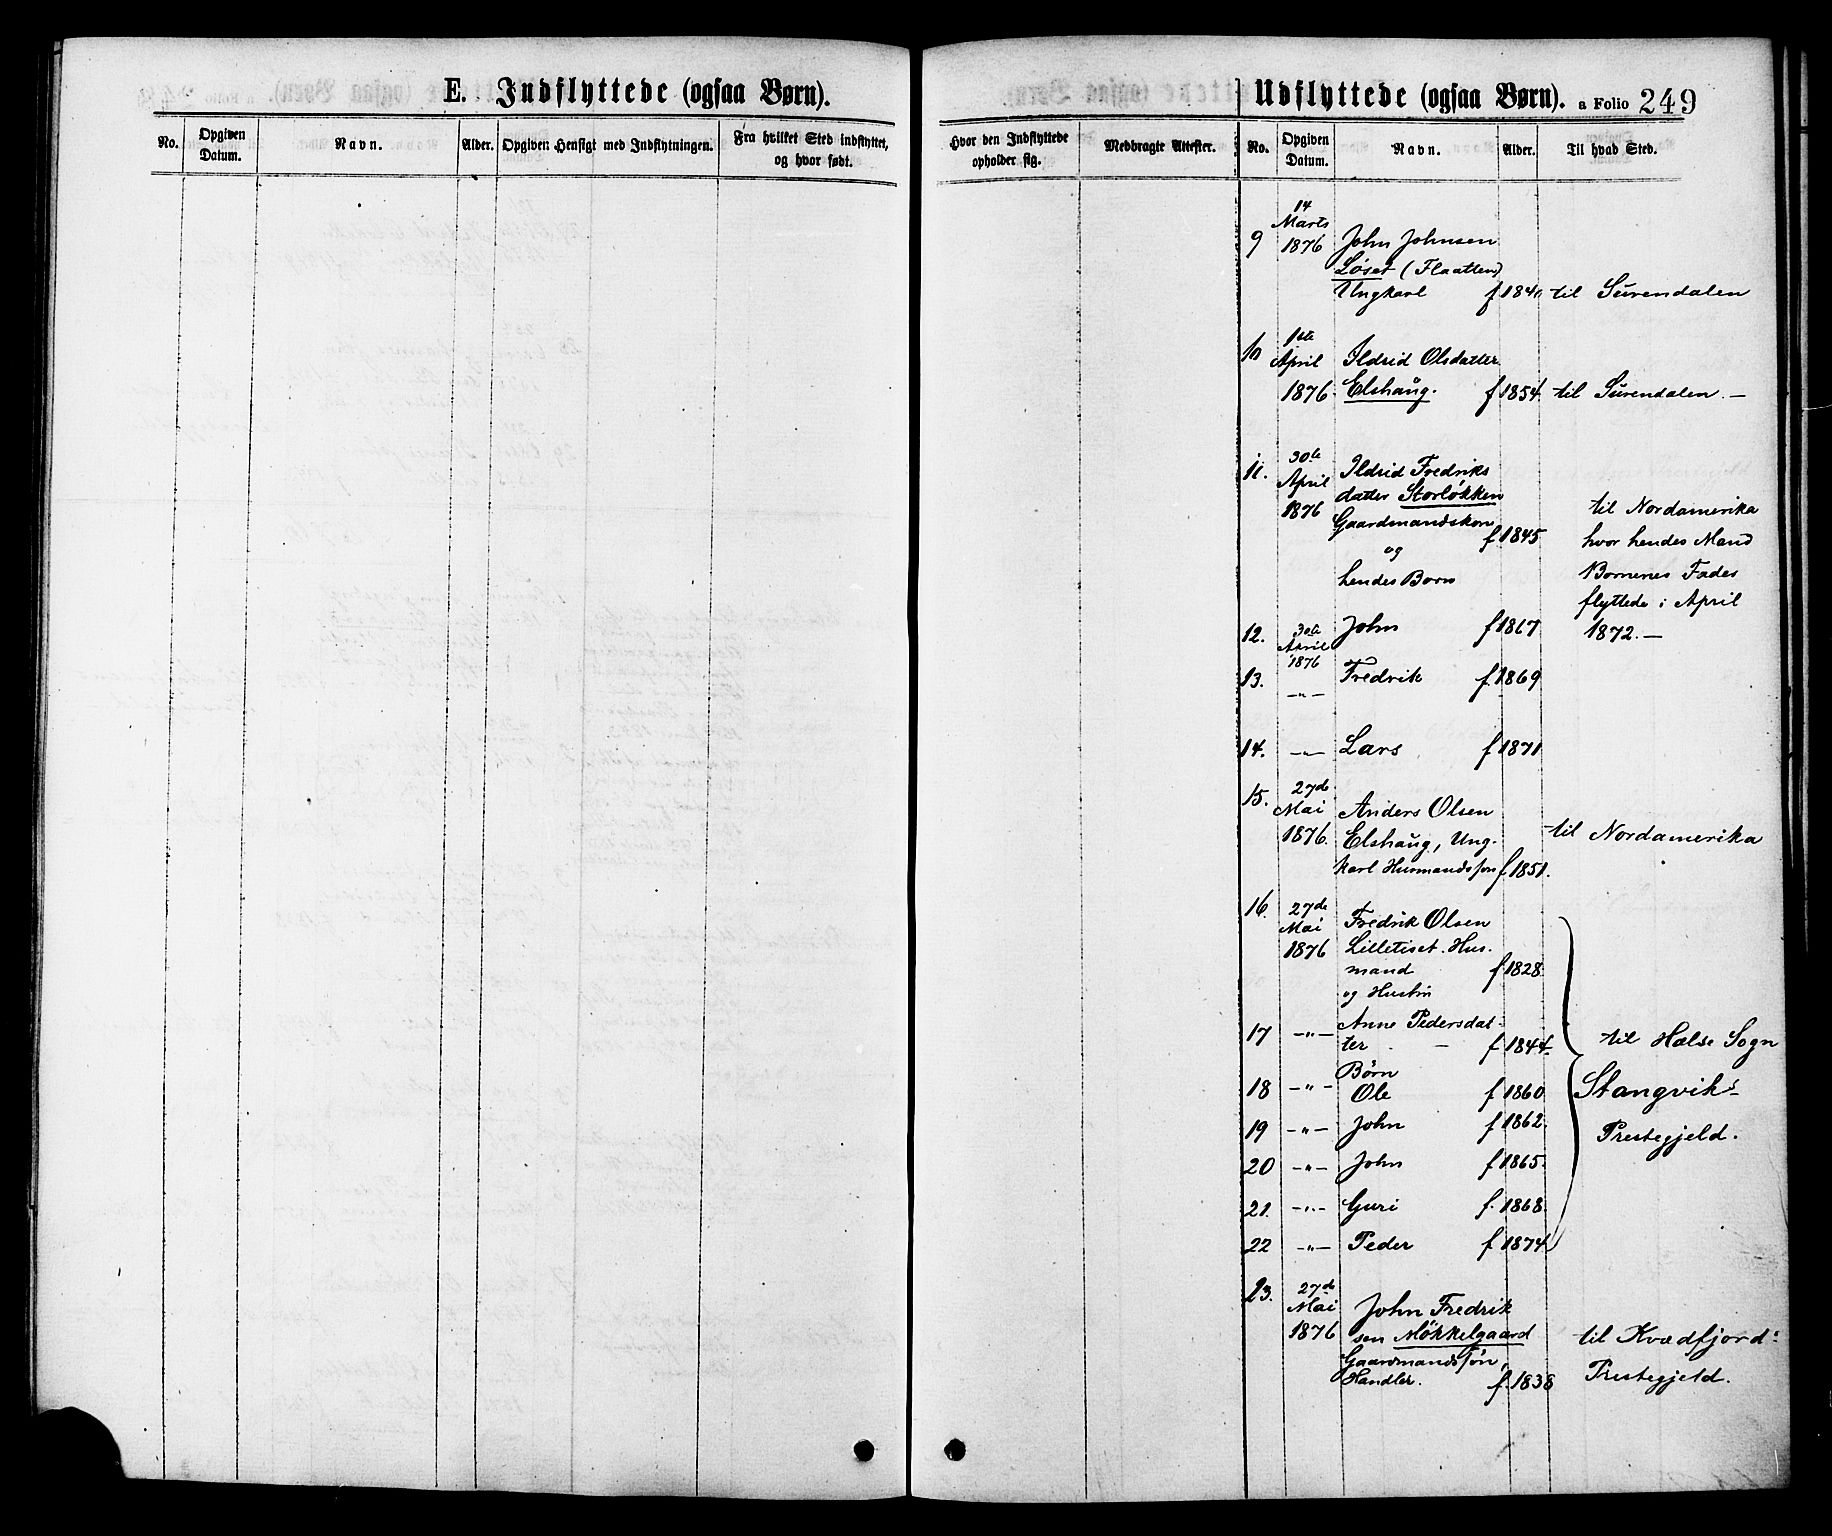 E. Indflyttede (ogsaa Børn).
No.
Opgiven Datum.
Navn.
Alder.
Opgiven Hensigt med Indflytningen.
Fra hvilket Sted indflyttet, og hvor født.
Udflyttede (ogsaa Børn). a Folio 249
Hvor den Indflyttede opholder sig.
Medbragte Attester.
No.
Opgiven Datum.
Navn.
Alder.
Til hvad Sted.
14
Marts
9 1876 John Johnsen
Løset (Flaatten)
Ungkarl f 1840 til Surendalen
1ste
10 April Ildrid Olsdatter
1876. Elshaug. f 1854. til Surendalen. —
30te
11. April Ildrid Fredriks
datter Storløkken
1876 Gaardmandskon f. 1845
og
hendes Born
til Nordamerika
hvor hendes Mand
Bornenes Fader
flyttede i April
1872. —
12. 30te John f 1867
April
1876
13. —"— Fredrik f. 1869
14. —"— Lars f 1871
15. 27de
Mai Anders Olsen
1876. Elshaug, Ung-
karl Husmandssøn f. 1851.
til Nordamerika
16. 27de
Mai Fredrik Olsen
1876 Lilletiset. Hus-
mand f. 1828
og Hustru
17 —"— Anne Pedersdat-
ter f. 1844.
Børn
18 —"— Ole f. 1860
19 —"— John f. 1862.
20 —"— John f. 1865.
21. —"— Guri f. 1868.
22 —"— Peder f. 1874
til Halse Sogn
Stangviks
Prestegjeld.
23. 27de
Mai John Fredrik
1876 sen Møkkelgaard
Gaardmandssøn,
Handler. f. 1838
til Kvædfjord
Prestegjeld.